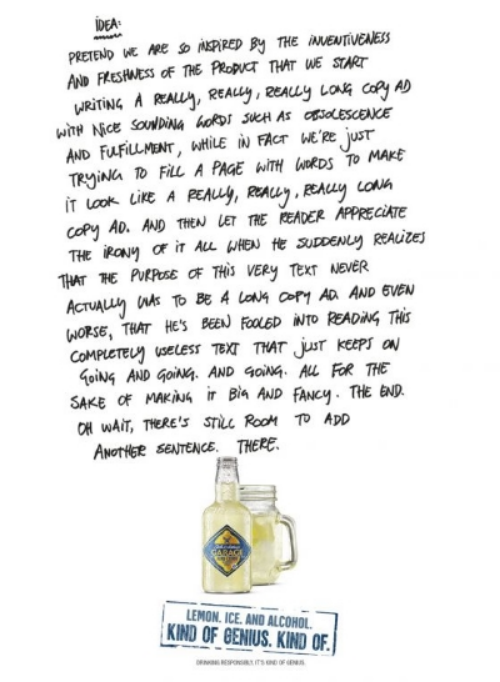 IDEA:
PRETEND WE ARE SO INSPIRED BY THE INVENTIVENESS
AND FRESHNESS OF THE PRODUCT THAT WE START
WRITING A REALLY, REALLY, REALLY LONG COPY AD
WITH NICE SOUNDING WORDS SUCH AS OBSOLESCENCE
AND FULFILLMENT, WHILE IN FACT WE'RE JUST
TRYING TO FILL A PAGE WITH WORDS TO MAKE
IT LOOK LIKE A REALLY, REALLY, REALLY LONG
COPY AD. AND THEN LET THE READER APPRECIATE
THE IRONY OF IT ALL WHEN HE SUDDENLY REALIZES
THAT THE PURPOSE OF THIS VERY TEXT NEVER
ACTUALLY WAS TO BE A LONG COPY AD. AND EVEN
WORSE, THAT HE'S BEEN FOOLED INTO READING THIS
COMPLETELY USELESS TEXT THAT JUST KEEPS ON
GOING AND GOING. AND GOING. ALL FOR THE
SAKE OF MAKING IT BIG AND FANCY. THE END.
OH WAIT, THERE'S STILL ROOM TO ADD
ANOTHER SENTENCE. THERE.
GARAGE
LEMON. ICE. AND ALCOHOL.
KIND OF GENIUS. KIND OF.
DRINKING RESPONSIBLY. IT'S KIND OF GENIUS.